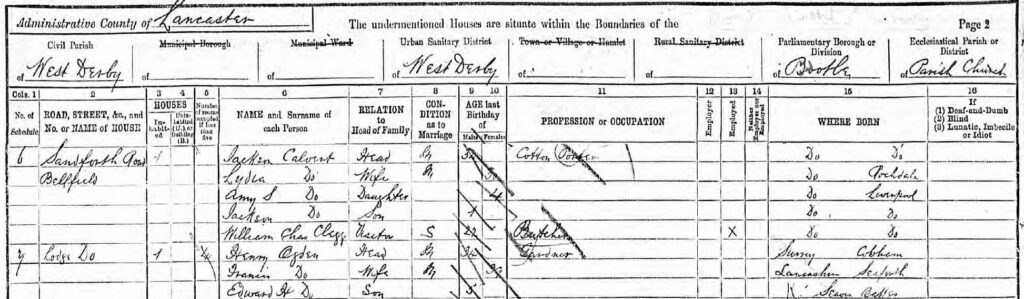 Administrative County of Lancaster The undermentioned Houses are situate within the Boundaries of the Page 2
Civil Parish Municipal Borough Municipal Ward Urban Sanitary District Town or Village or Hamlet Rural Sanitary District Parliamentary Borough or Division Ecclesiastical Parish or District
of West Derby of of of West Derby of of of Bootle of Parish Church
Cols. 1 2 3 4 5 6 7 8 9 10 11 12 13 14 15 16
No. of Schedule ROAD, STREET, &c., and No. or NAME of HOUSE HOUSES Inhabited Uninhabited (U.), or Building (B.) Number of rooms occupied if less than five NAME and Surname of each Person RELATION to Head of Family CONDITION as to Marriage AGE last Birthday of Males Females PROFESSION or OCCUPATION Employer Employed Neither Employer nor Employed WHERE BORN If (1) Deaf-and-Dumb (2) Blind (3) Lunatic, Imbecile or Idiot
6 Sandforth Road 1 Jackson Calvert Head M Cotton Porter Do Do
Bellfield Lydia Do Wife M Do Rochdale
Amy S Do Daughter 4 Do Liverpool
Jackson Do Son 1 Do Do
William Chas Clegg Visitor S 22 Butcher X Do Do
7 Lodge Do 1 4 Henry Ogden Head M Gardner Surrey Cobham
Francis Do Wife M Lancashire Seaforth
Edward H Do Son 5